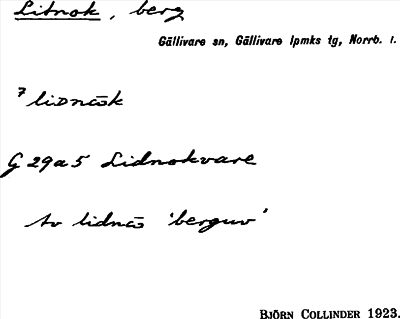 Litnok, berg
Gällivare sn, Gällivare lpmks tg, Norrb. l.
7 liᴅnɑ̄k
G 29a5 Lidnokvare
Av lidnō 'berguv'
BJÖRN COLLINDER 1923.